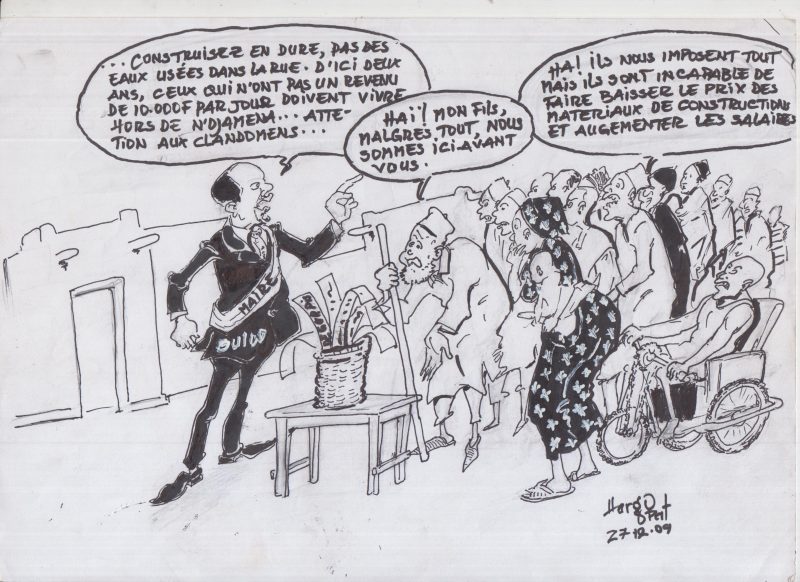 ... CONSTRUISEZ EN DURE, PAS DES
EAUX USÉES DANS LA RUE. D'ICI DEUX
ANS, CEUX QUI N'ONT PAS UN REVENU
DE 10.000F PAR JOUR DOIVENT VIVRE
HORS DE N'DJAMENA... ATTE-
TION AUX CLANDOMENS...
HAÏ! MON FILS,
MALGRES TOUT, NOUS
SOMMES ICI AVANT
VOUS.
HA! ILS NOUS IMPOSENT TOUT
MAIS ILS SONT INCAPABLE DE
FAIRE BAISSER LE PRIX DES
MATERIAUX DE CONSTRUCTIONS
ET AUGEMENTER LES SALAIRES
MAIRE
27.12.09